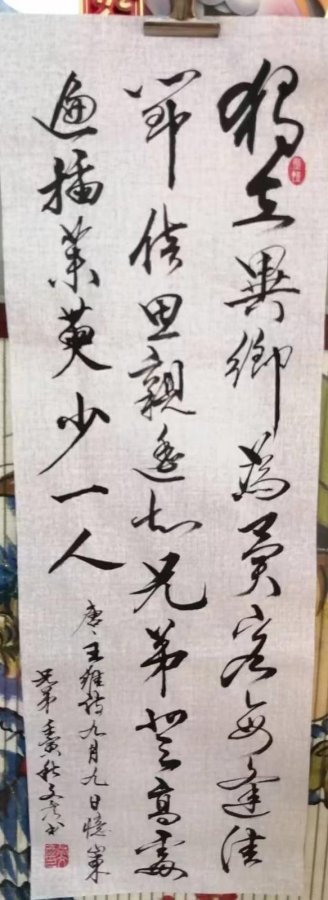 獨在異鄉為異客每逢佳
節倍思親遙知兄弟登高處
遍插茱萸少一人
唐王維詩九月九日憶山東
兄弟 壬寅秋文书